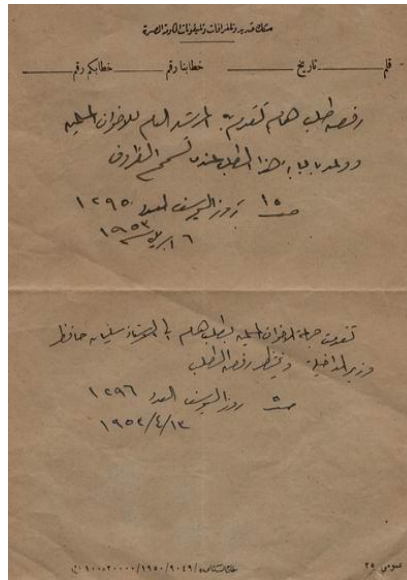 سكك حديد وتلغرافات وتليفونات الحكومة المصرية
قلم ـــــ تاريخ ـــــ خطابنا رقم ـــــ خطابكم رقم ـــــ
رفض طلب هام تقدم به المرشد العام للاخوان المسلمين
ووعد باجابة هذا الطلب عندما تسمح الظروف
ص ١٥ روز اليوسف العدد ١٢٩٥
تقدمت جماعة الاخوان المسلمين بطلب هام الى الاستاذ سليمان حافظ
وزير الداخلية وينتظر رفض الطلب
ص ٥ روز اليوسف العدد ١٢٩٦
١٩٥٣/٤/١٣
عمومى ٢٥